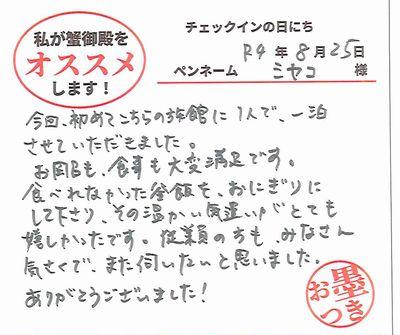 私が蟹御殿を
オススメ
します!
チェックインの日にち
R4年8月25日
ペンネーム ミヤコ 様
今回、初めてこちらの旅館に1人で、一泊
させていただきました。
お風呂も、食事も大変満足です。
食べれなかった釜飯を、おにぎりに
して下さり、その温かい気遣いがとても
嬉しかったです。従業員の方も、みなさん
気さくで、また伺いたいと思いました。
ありがとうございました!
お墨つき